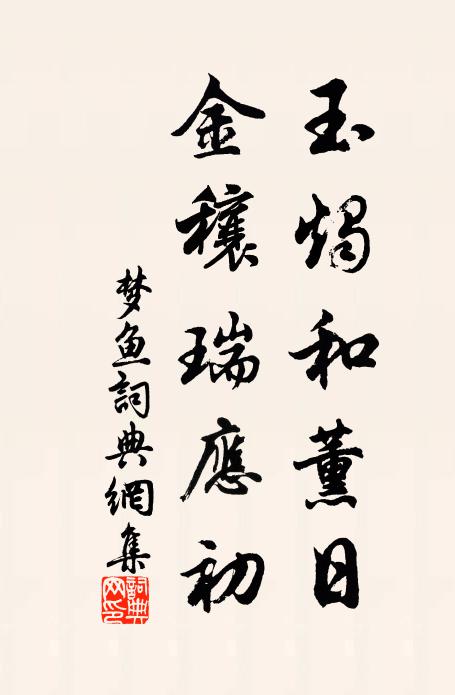 玉燭和薰日
金穰瑞應初
梦鱼詞典網集
詞典网印